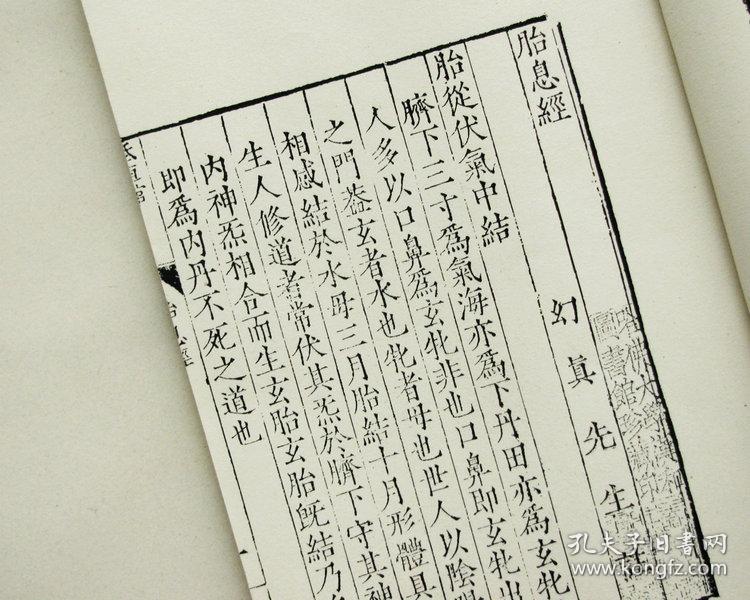 胎息經
幻眞先生
胎從伏氣中結
臍下三寸爲氣海亦爲下丹田亦爲玄牝
人多以口鼻爲玄牝非也口鼻即玄牝出
之門葢玄者水也牝者母也世人以陰陽
相感結於水母三月胎結十月形體具
生人修道者常伏其炁於臍下守其神
内神炁相合而生玄胎玄胎旣結乃
即爲内丹不死之道也
胎息經
哈佛大學漢和
圖書館珍藏印
孔夫子旧书网
www.kongfz.com